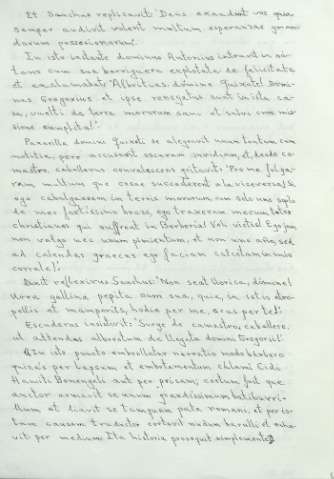 Et Sanchus replicavit: "Deus exaudiat vos quia
semper audivi valent multum esperanzae quam
possesionorum."
In isto instante dominus Antonius intravit in
cum sua barriguera explotata de felicitate
et exclamabat: "Albricias, domine Quixote! Domi-
nus Gregorius et ipse renegatus sunt in ista ca-
sa, vuelti de terra mororum sani et salvi cum mis-
sione
Paucilla domini Quixoti se alegravit cum
notitia, pero accusavit oscuram invidiam, et, desde ca-
mastro, caballerus convalescens gritavit: "Pro me fulga-
ram multum que cosae succederent a la viceversa! Si
ego cabalgassem in terris mororum cum solo uno
de meo fortissimo braso, ego traxeram mecum totos
christianos qui suffrent in Berberia! Voh victis! Ego jam
non valgo nec unum pimientum, et non uno año, sed
ad calendas graecas ego faciam
correcte!"
Dixit reflexivus Sanchus: "Non seat llorica, domine!
gallina pepita cum sua, quia, si set is
et hodie per me, cras per te!"
Escuderus insistivit: "Surge de camastro, caballere,
ut attendas alboratum de llegata domini Gregorii!"
In isto puncto embrollatur narratio modo barbaro
quizais per lapsum et embotamentum chlami Cidi
Hamiti Benengeli aut per prisam; certum fuit que
auctor armavit se unum grandissimum batiburri-
llum et liavit se tamquam pata romani, et per is-
tam causam traductor cortavit nudum barulli et
vit per medium. Ita historia prosequit simplemente: